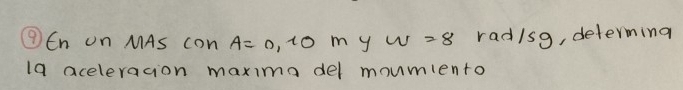 9 En un MAS con A= 0,10 m y w = 8 rad/sg, determina
la aceleracion maxima del movimiento